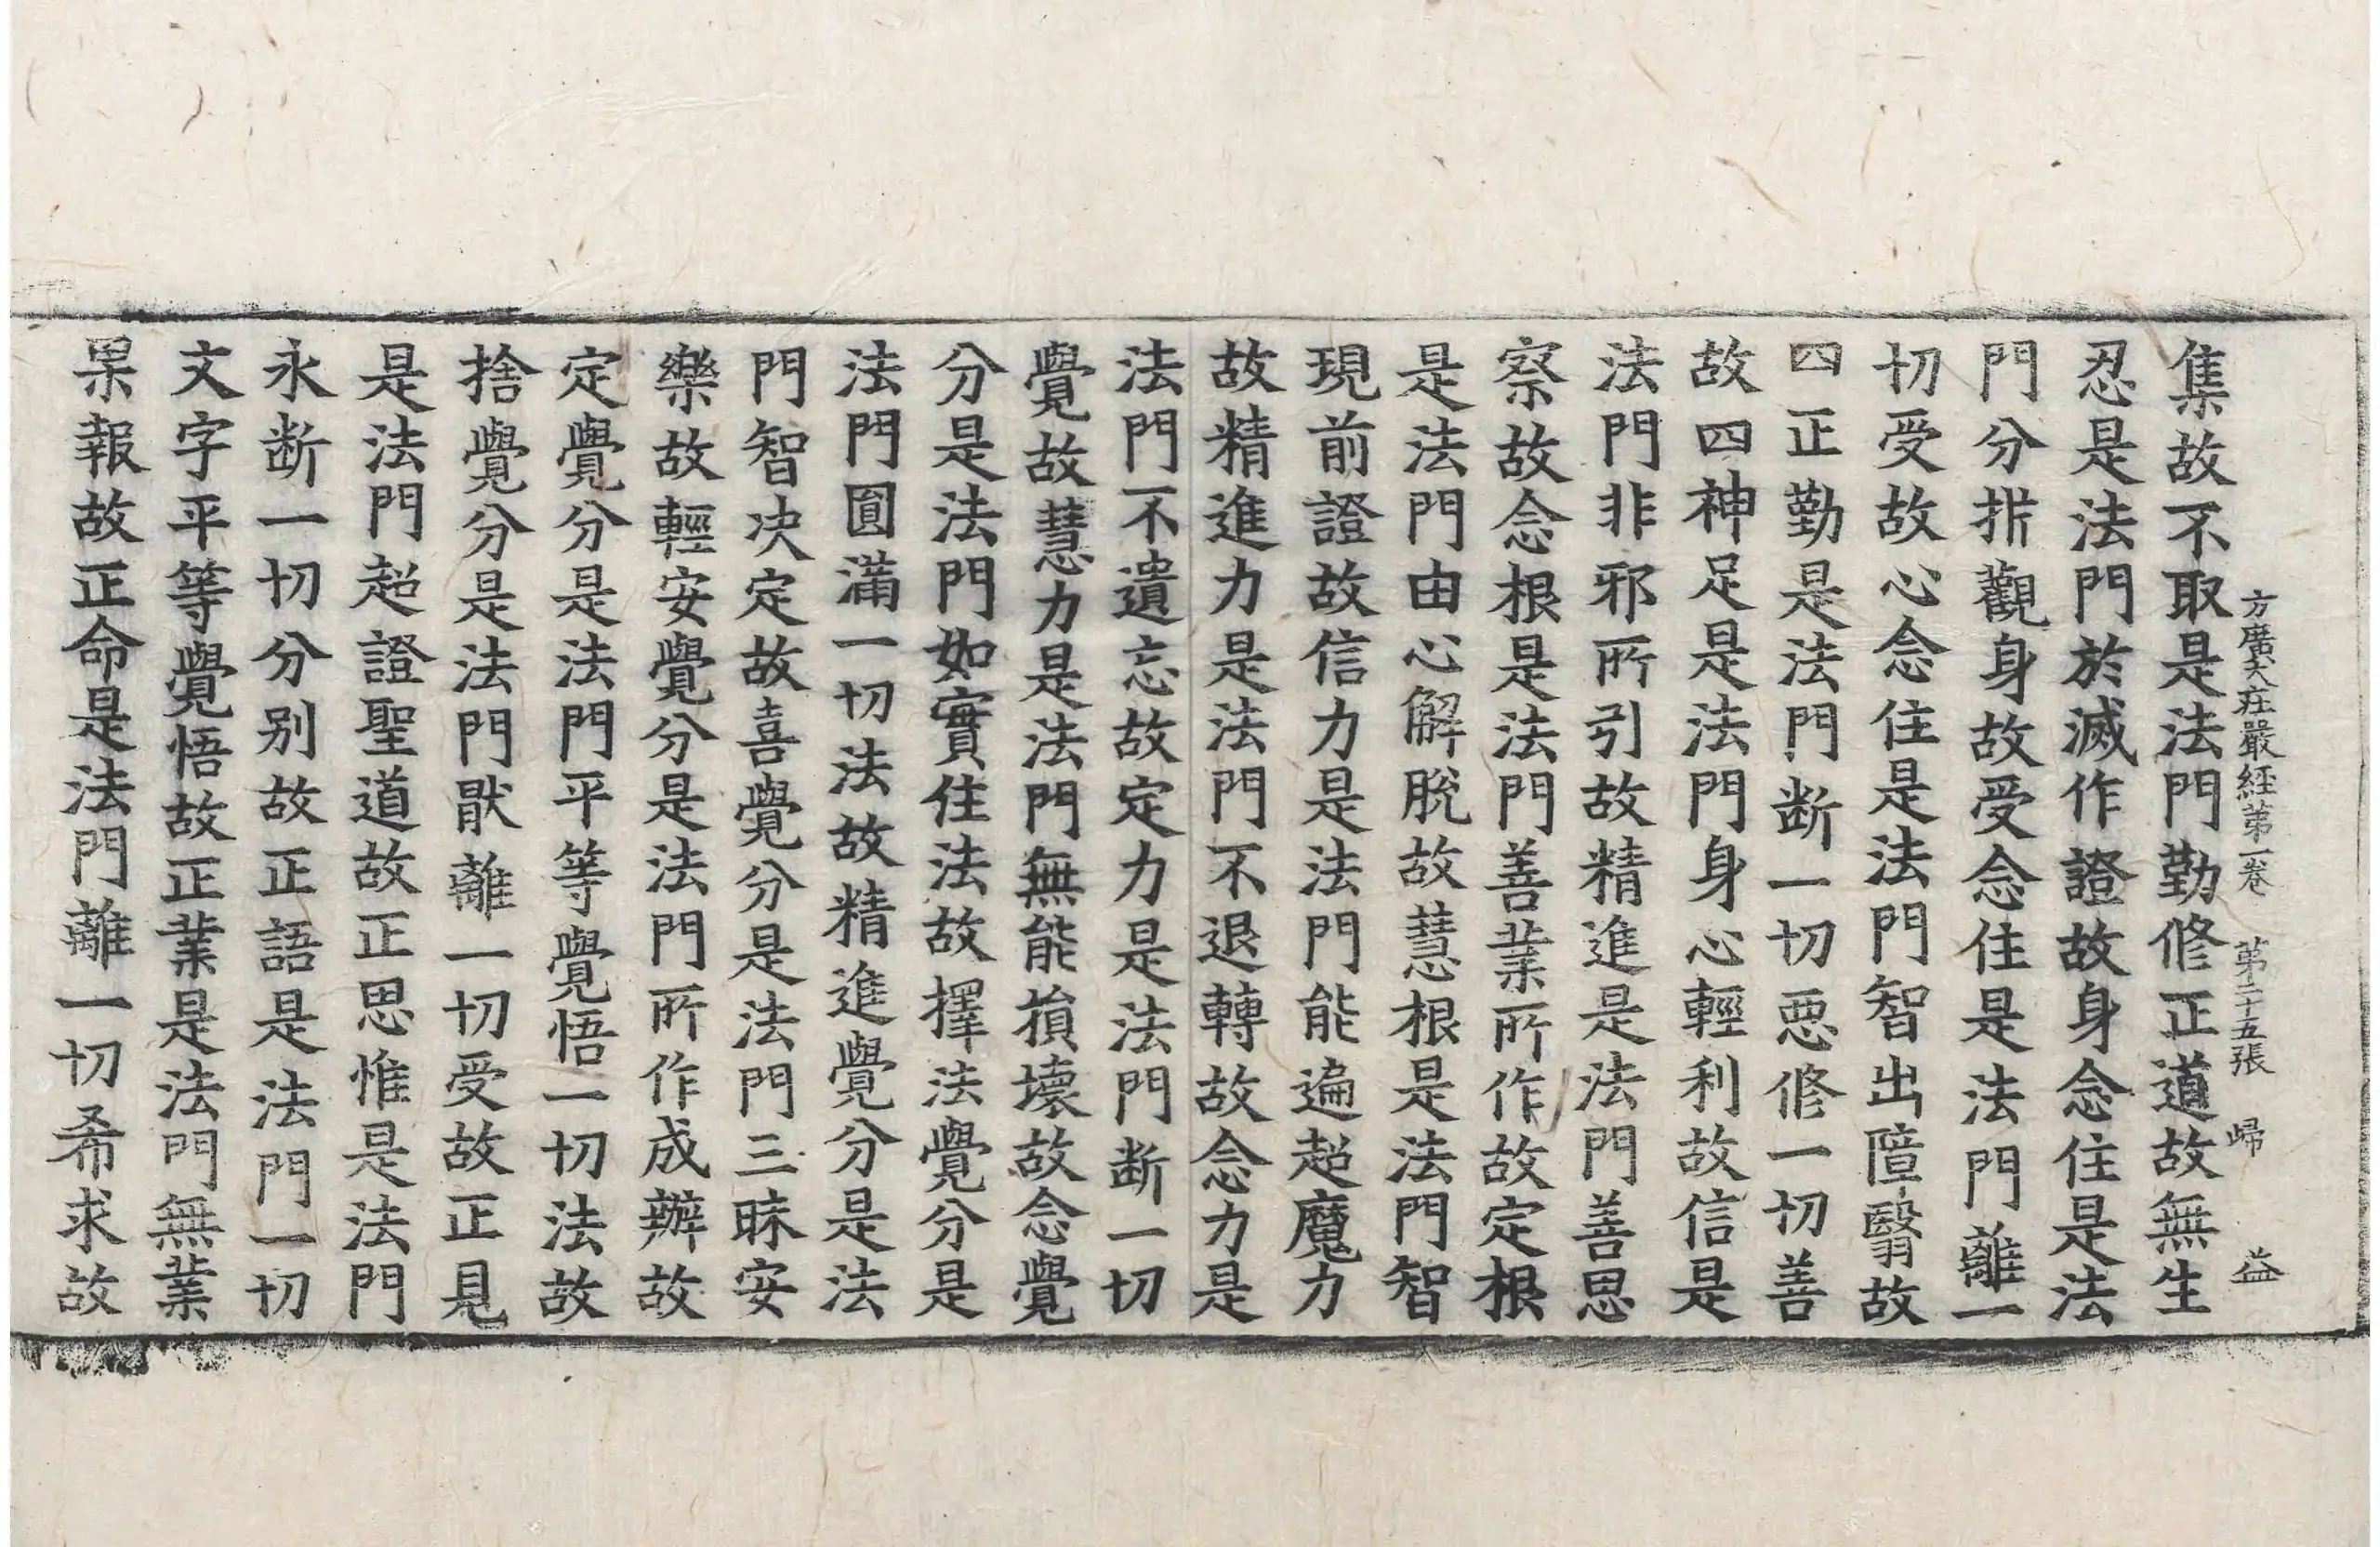 方廣大莊嚴經第一卷 第二十五張 歸 益
集故不取是法門勤修正道故無生
忍是法門於滅作證故身念住是法
門分㭊觀身故受念住是法門離一
切受故心念住是法門智出障翳故
四正勤是法門断一切惡修一切善
故四神足是法門身心輕利故信是
法門非邪所引故精進是法門善思
察故念根是法門善業所作故定根
是法門由心解脫故慧根是法門智
現前證故信力是法門能遍超魔力
故精進力是法門不退轉故念力是
法門不遺忘故定力是法門断一切
覺故慧力是法門無能損壞故念覺
分是法門如實住法故擇法覺分是
法門圓滿一切法故精進覺分是法
門智决定故喜覺分是法門三昧安
樂故輕安覺分是法門所作成辦故
定覺分是法門平等覺悟一切法故
捨覺分是法門猒離一切受故正見
是法門超證聖道故正思惟是法門
永断一切分别故正語是法門一切
文字平等覺悟故正業是法門無業
果報故正命是法門離一切希求故